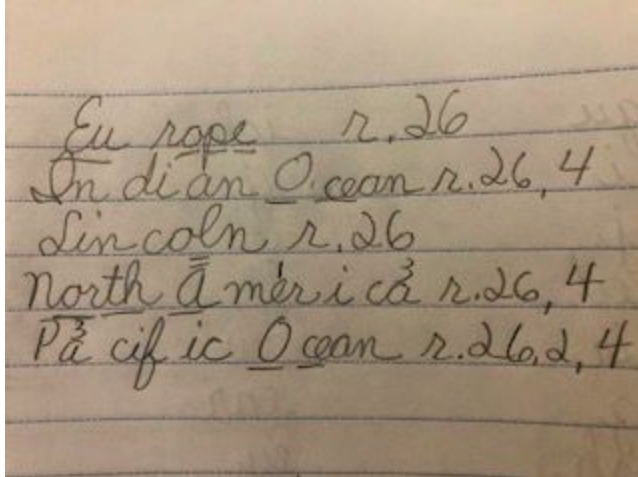 Eu rope r. 26
In di an O cean r. 26, 4
Lin coln r. 26
North A mer i ca r. 26, 4
Pa cif ic O cean r. 26, 2, 4